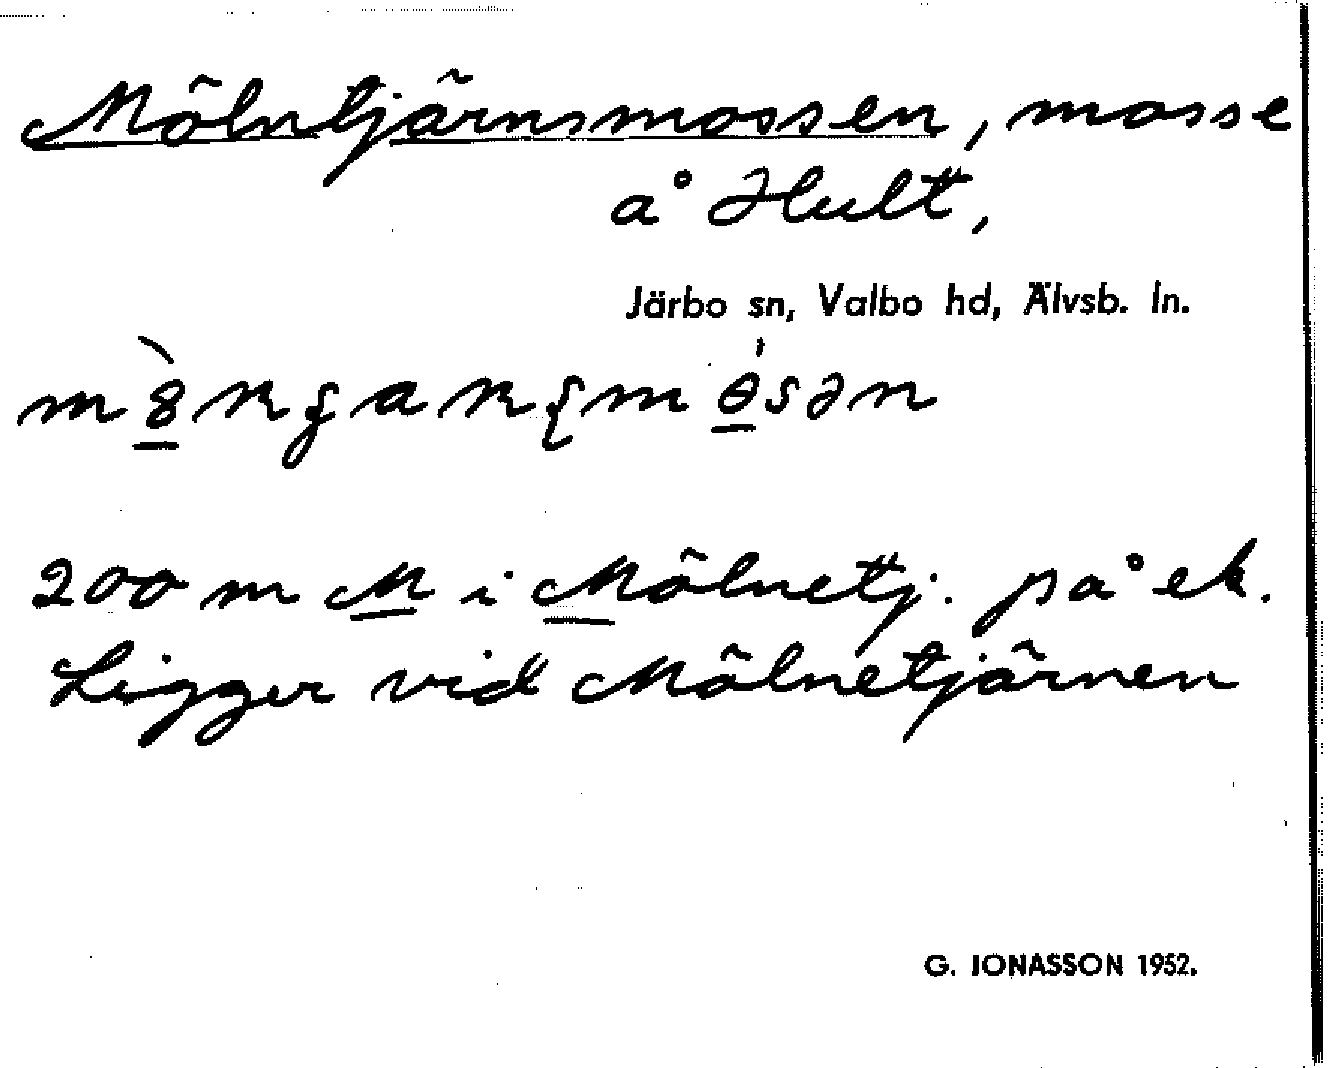 Mölntjärnsmossen, mosse
å Hult,
Järbo sn, Valbo hd, Älvsb. ln.
200 m M i Mölnetj. på ek.
Ligger vid Mölnetjärnen
G. JONASSON 1952.